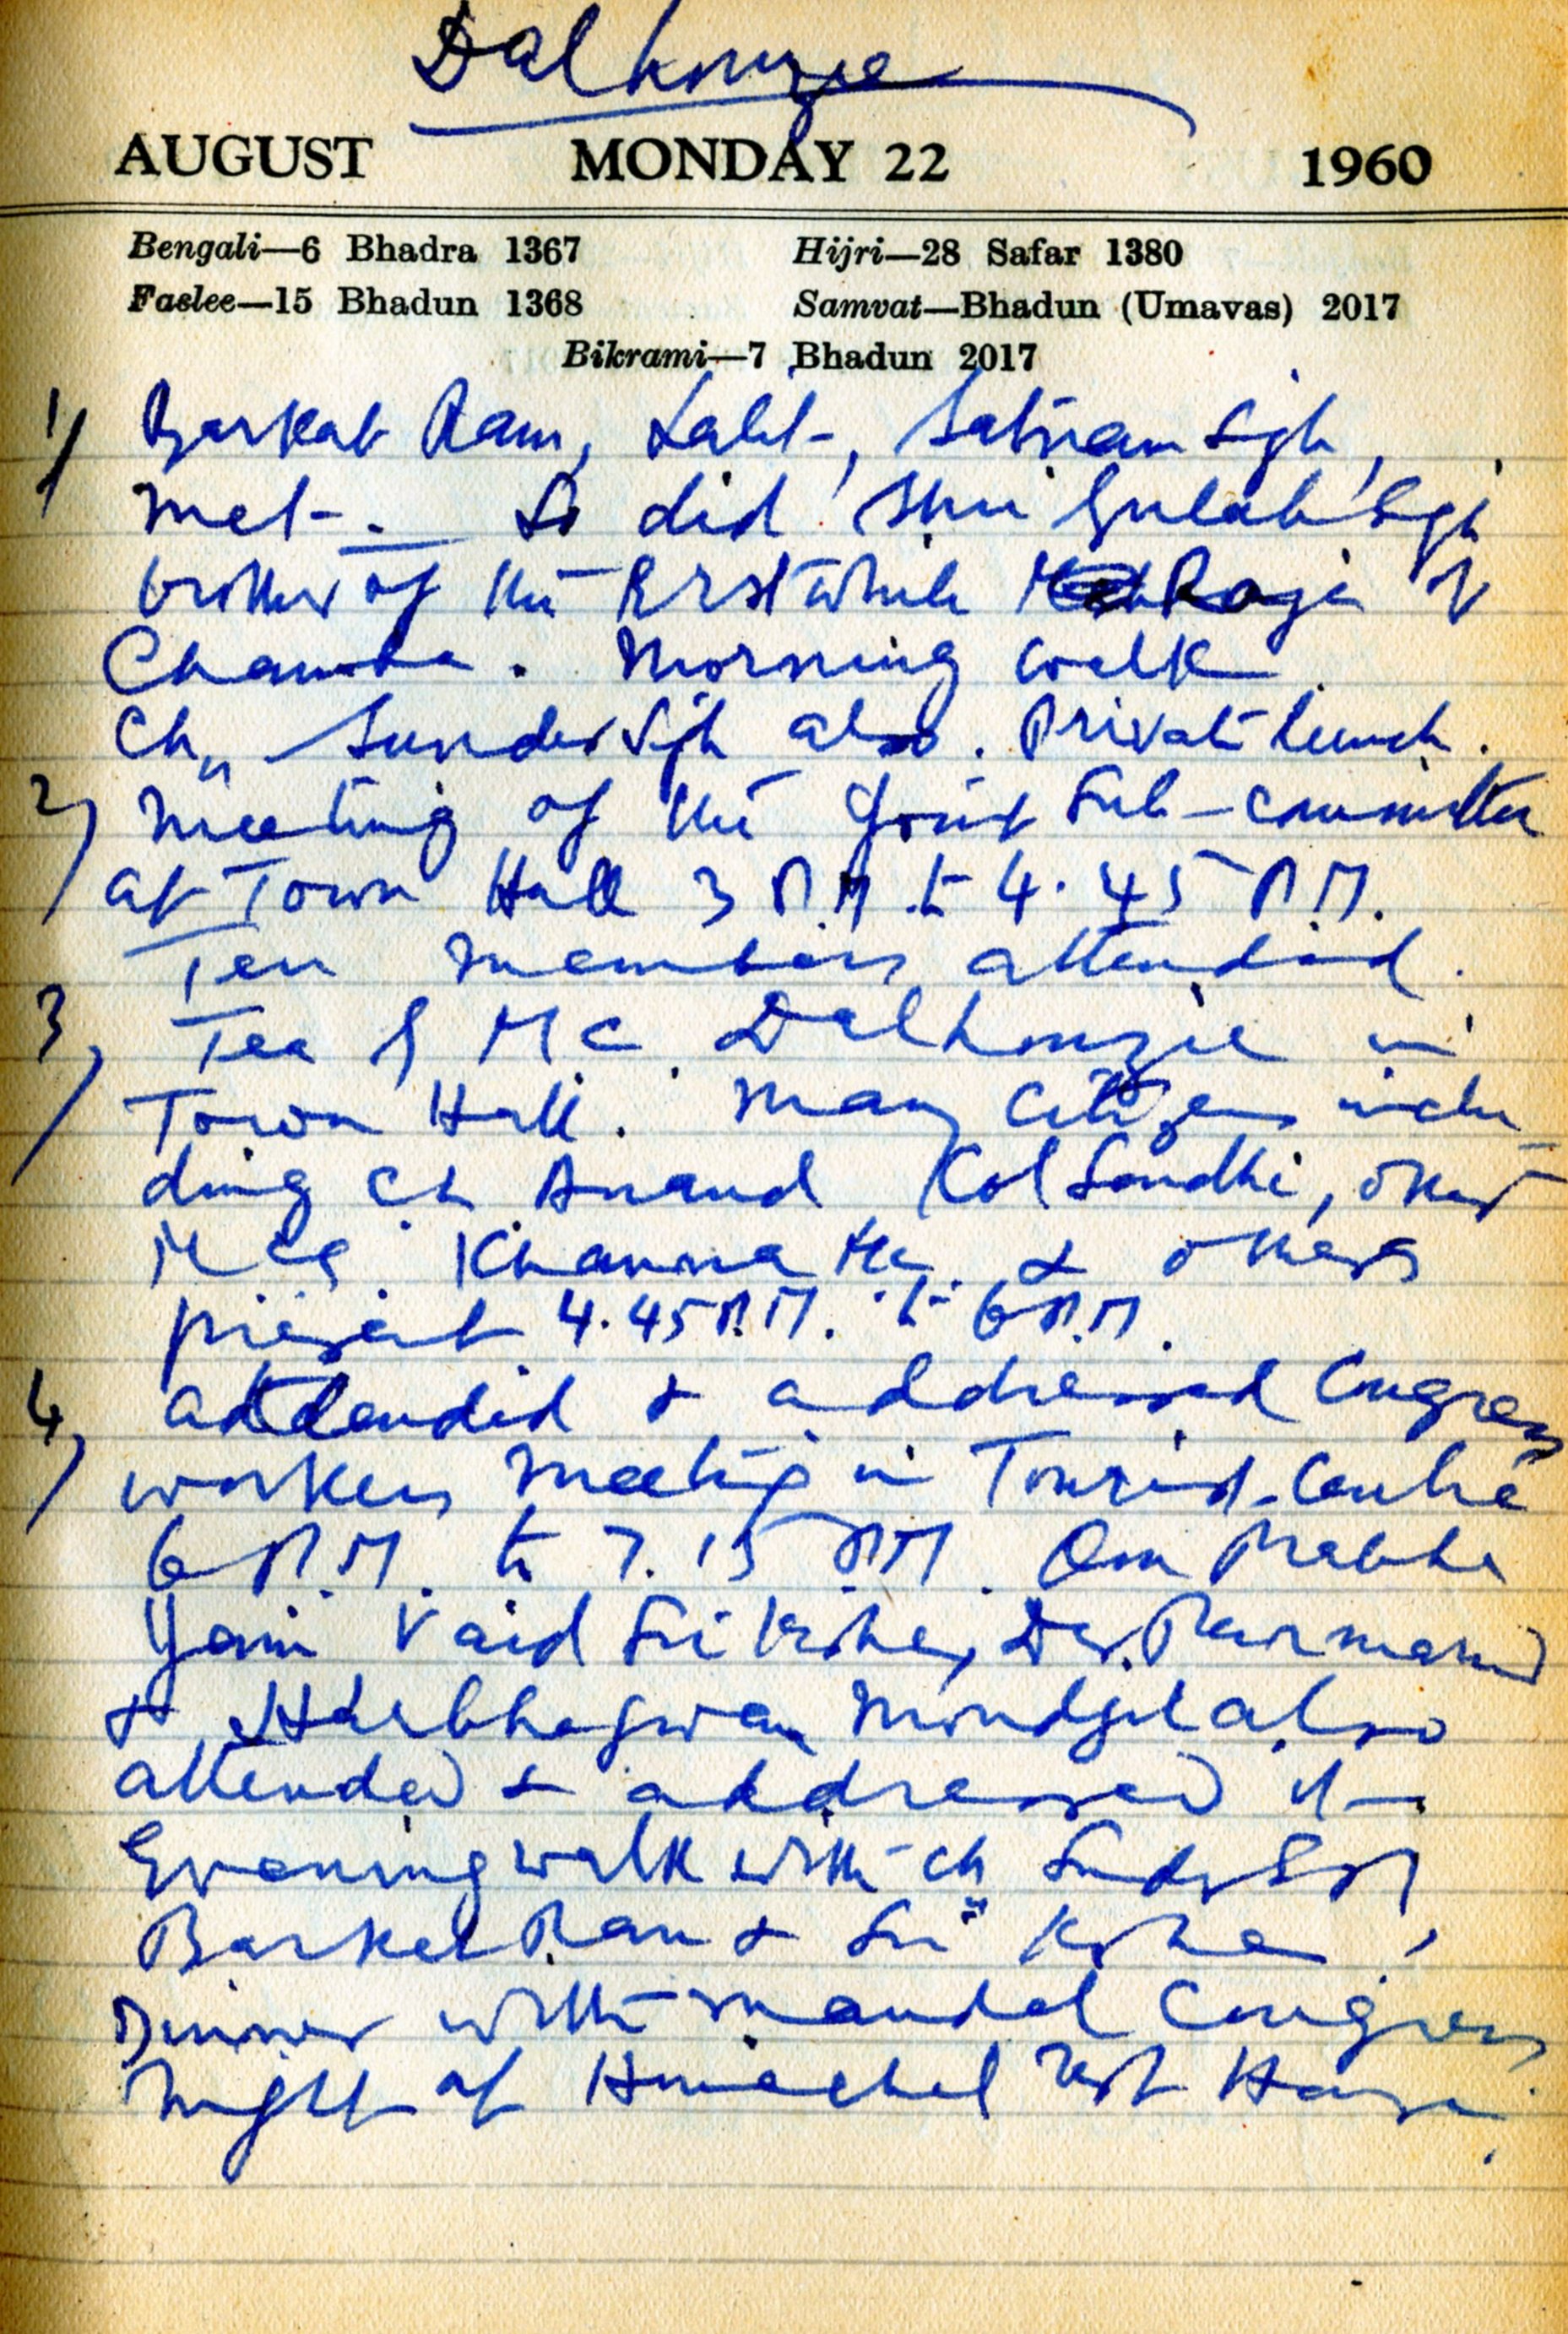 Dalhouzie
AUGUST MONDAY 22 1960
Bengali—6 Bhadra 1367 Hijri—28 Safar 1380
Faslee—15 Bhadun 1368 Samvat—Bhadun (Umavas) 2017
Bikrami—7 Bhadun 2017
1/ Barkat Ram, Lalit, Satnam Sgh,
met. So did Shri Gulab Sgh
brother of the Erstwhile Raja of
Chamba. Morning walk
Ch. Sunder Sgh also. Private lunch.
2/ Meeting of the Joint Sub-committee
at Town Hall 3 P.M. to 4.45 P.M.
Ten members attended.
3/ Tea of M C Dalhouzie in
Town Hall. Many Citizens inclu
ding Ch Anand Col Sondhi, other
M Cs. Khanna & others
present 4.45 P.M. to 6 P.M.
4/ attended & addressed Congress
workers meeting in Tourist Centre
6 P.M. to 7.15 P.M. Om Prabha
Jain Vaid Sri Krshen, Dev. Parmanand
& Harbhagwan Moudgil also
attended & addressed it
Evening walk with Ch Sunder Sgh
Barkat Ram & Sri Krshen,
Dinner with Mandal Congress
Night at Himachal Rest House.